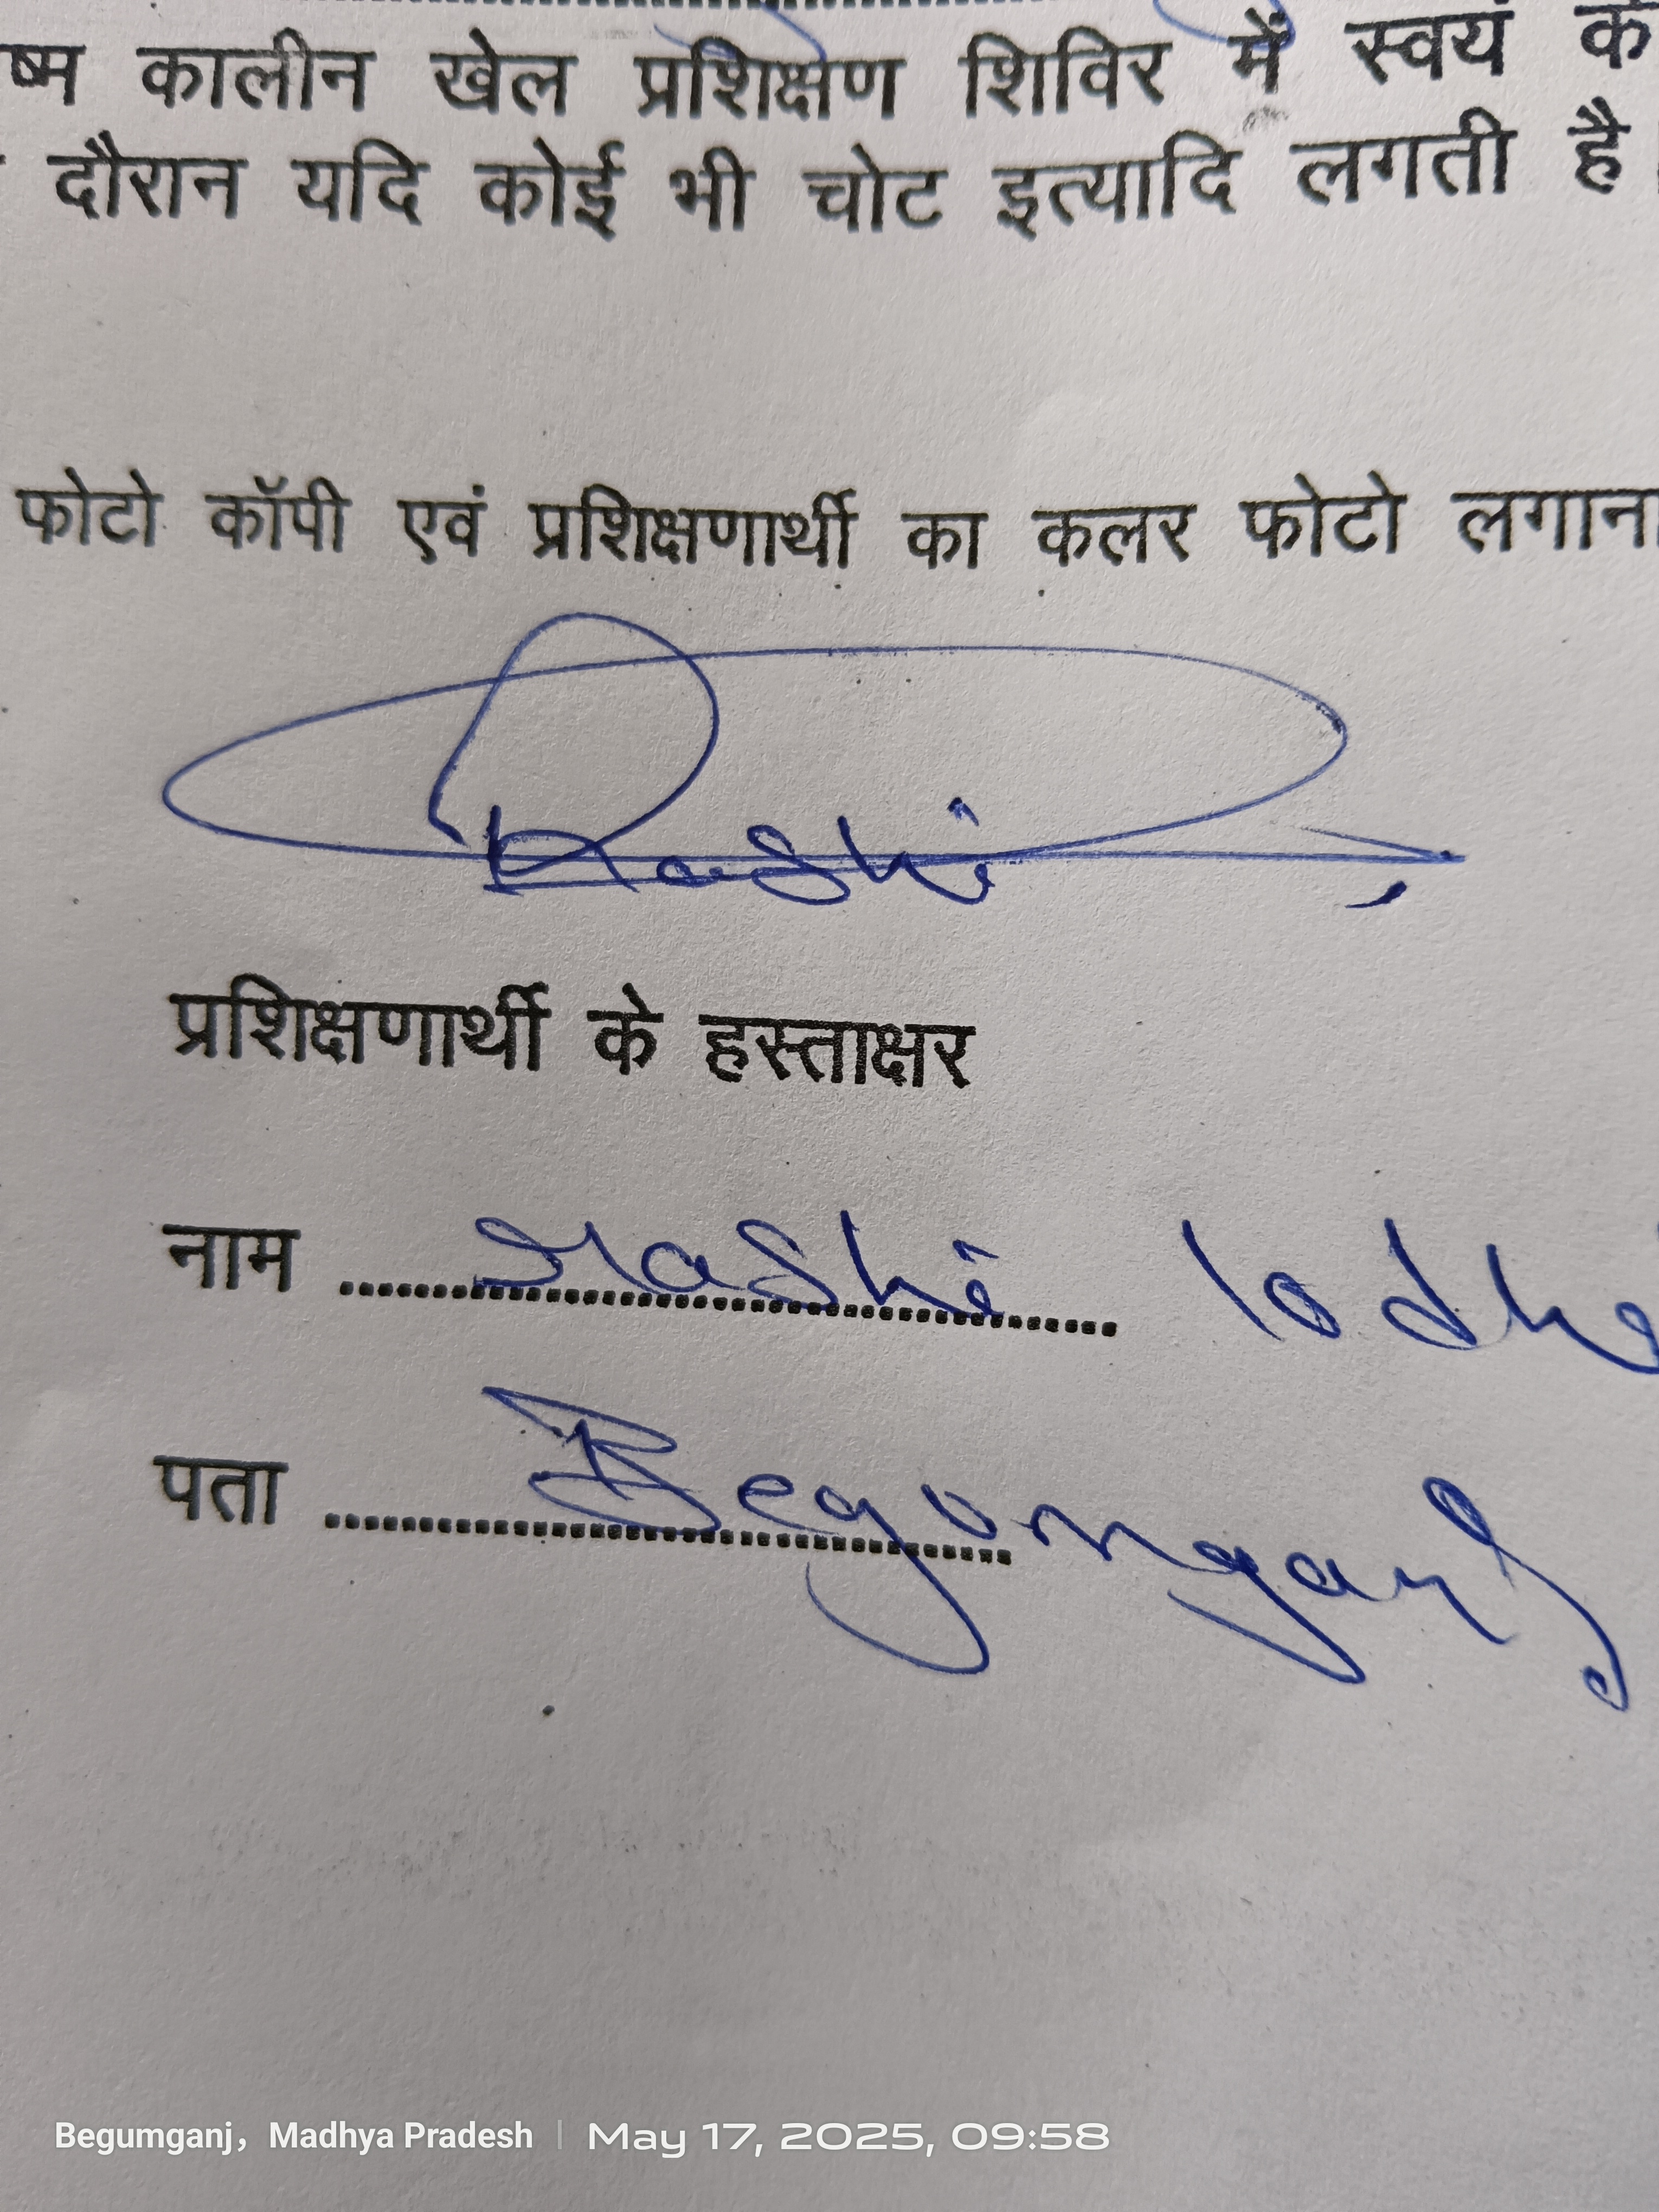 ष्म कालीन खेल प्रशिक्षण शिविर में स्वयं
दौरान यदि कोई भी चोट इत्यादि लगती है
फोटो कॉपी एवं प्रशिक्षणार्थी का कलर फोटो लगाना
Rashi
प्रशिक्षणार्थी के हस्ताक्षर
नाम .................... rashi lodhi
पता .................... Begumganj
Begumganj, Madhya Pradesh | May 17, 2025, 09:58